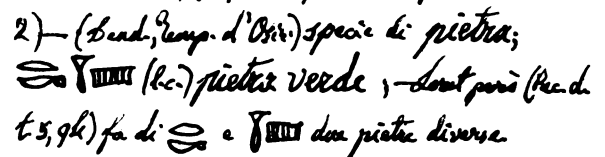 2)— (Dend., Temp. d'Osir.) specie di pietra;
(l.c.) pietra verde, — Loret però (Rec. de
t. 5, 96) fa di e due pietre diverse